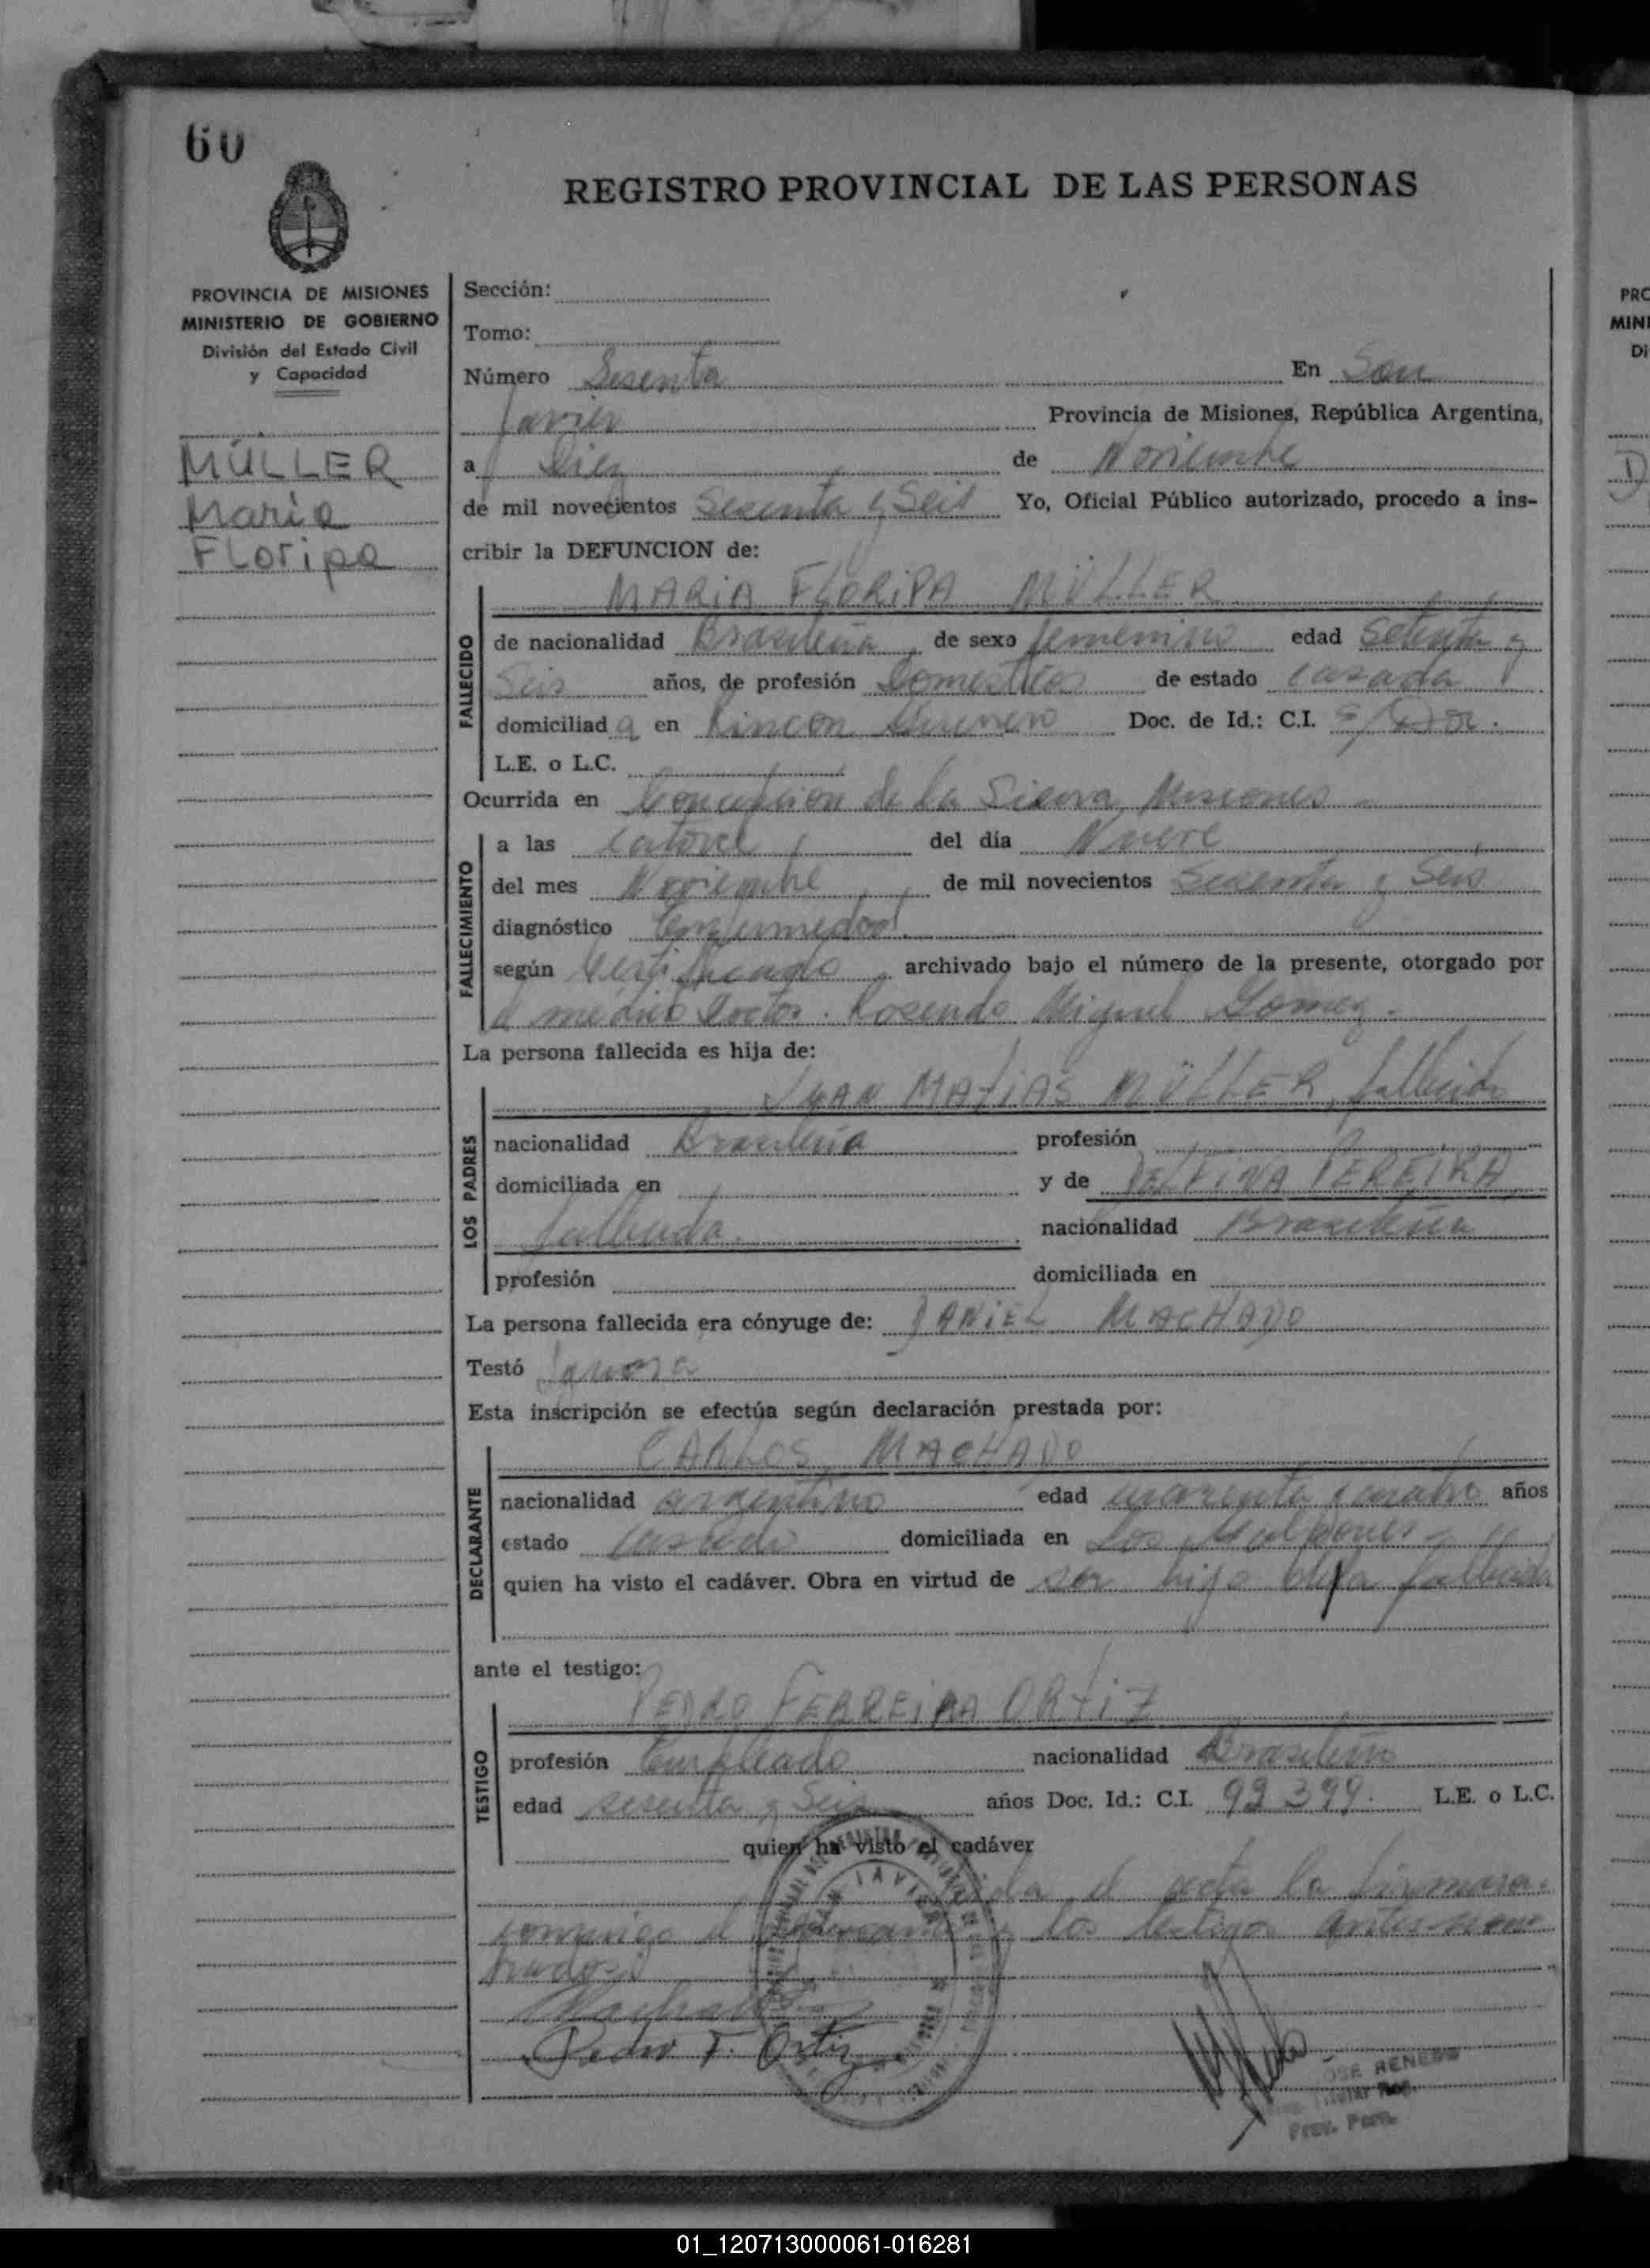 60
REGISTRO PROVINCIAL DE LAS PERSONAS
PROVINCIA DE MISIONES
MINISTERIO DE GOBIERNO
División del Estado Civil
y Capacidad
MÜLLER
Maria
Floripa
Sección:
Tomo:
Número Sesenta En San
Javier Provincia de Misiones, República Argentina,
a Diez de Noviembre
de mil novecientos Sesenta y Seis Yo, Oficial Público autorizado, procedo a ins-
cribir la DEFUNCION de:
MARIA FLORIPA MÜLLER
FALLECIDO
de nacionalidad Brasileña, de sexo femenino edad Setenta y
Seis años, de profesión Domesticos de estado casada
domiciliada en Rincon Doc. de Id.: C.I.
L.E. o L.C.
Ocurrida en Concepcion de la Sierra Misiones
FALLECIMIENTO
a las catorce del día Nueve
del mes Noviembre, de mil novecientos Sesenta y Seis
diagnóstico Enfermedad.
según Certificado, archivado bajo el número de la presente, otorgado por
el medico Doctor. Rosendo Miguel Gomez.
La persona fallecida es hija de:
JUAN MATIAS MÜLLER, fallecido
LOS PADRES
nacionalidad Brasileña profesión
domiciliada en y de DELFINA PEREIRA
fallecida. nacionalidad Brasileña
profesión domiciliada en
La persona fallecida era cónyuge de: DANIEL MACHADO
Testó Ignora
Esta inscripción se efectúa según declaración prestada por:
CARLOS MACHADO
DECLARANTE
nacionalidad argentino edad cuarenta y cuatro años
estado casado domiciliada en Los Galpones
quien ha visto el cadáver. Obra en virtud de ser hijo de la fallecida
ante el testigo:
PEDRO FERREIRA ORTIZ
TESTIGO
profesión Empleado nacionalidad Brasileño
edad sesenta y Seis años Doc. Id.: C.I. 92.399. L.E. o L.C.
quien ha visto el cadáver
Leida el acta la firmaron
conmigo el declarante y los testigos antes nom
brados
Pedro F. Ortiz
JAVIER
Prov. Pers.
01_120713000061-016281